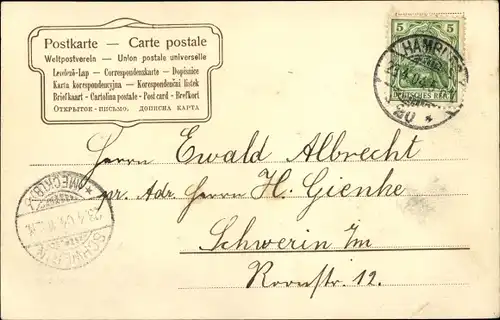 Postkarte — Carte postale
Weltpostverein — Union postale universelle
Levelező-Lap — Correspondenzkarte — Dopisnice
Karta korespondencyjna — Korespondenční lístek
Briefkaart — Cartolina postale — Post card — Brefkort
Открытое письмо. Дописна карта
5 5
HAMBURG
DEUTSCHES REICH
Herrn Ewald Albrecht
pr. Adr. Herrn H. Gienke
Schwerin I/m
Roonstr. 12.
(MECKLB)
23.4.04
SCHWERIN